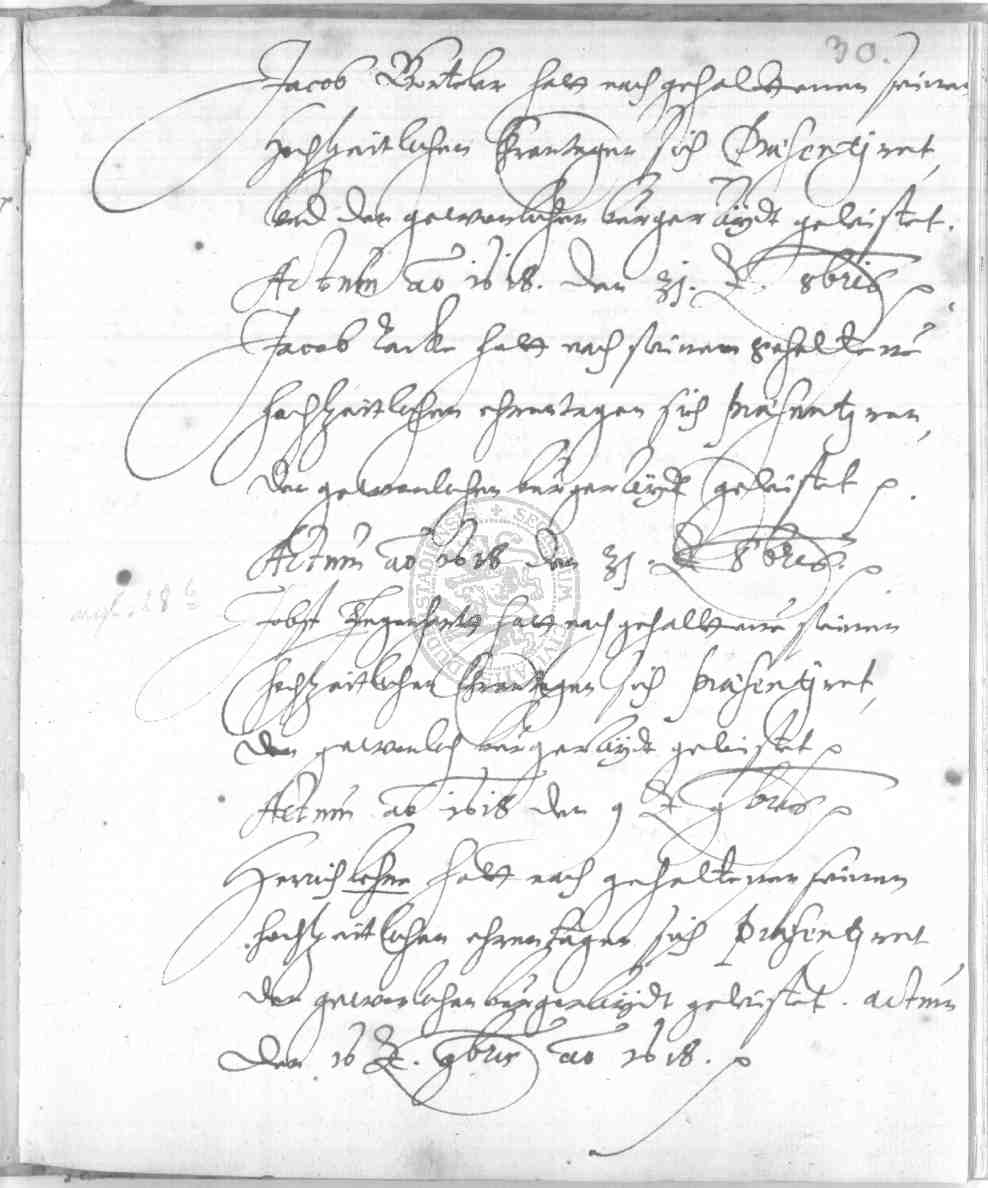 30.
Jacob hatt nach gehalttenen seinen
hochzeitlichen Ehrentagen sich Præsentiret,
vnd den gewonlichen bürger Aÿdt geleistet.
Actum ao 1618. den 31. 8bris
Jacob hatt nach seinem gehaltene
hochzeitlichen ehrentagen sich præsentiren,
den gewonlichen bürger aÿdt geleistet
Actum ao 1618 den 31. 8bris.
Jobst hatt nach gehalttene seinen
hochzeitlichen Ehrentagen sich præsentiret,
den gewonlich bürger aÿdt geleistet
Actum ao 1618 den 9 9bris
Henrich Lohne hatt nach gehaltenen seinen
hochzeitlichen ehrentagen sich præsentiret
den gewonlichen bürger Aÿdt geleistet. actum
Den 16 9bris ao 1618.